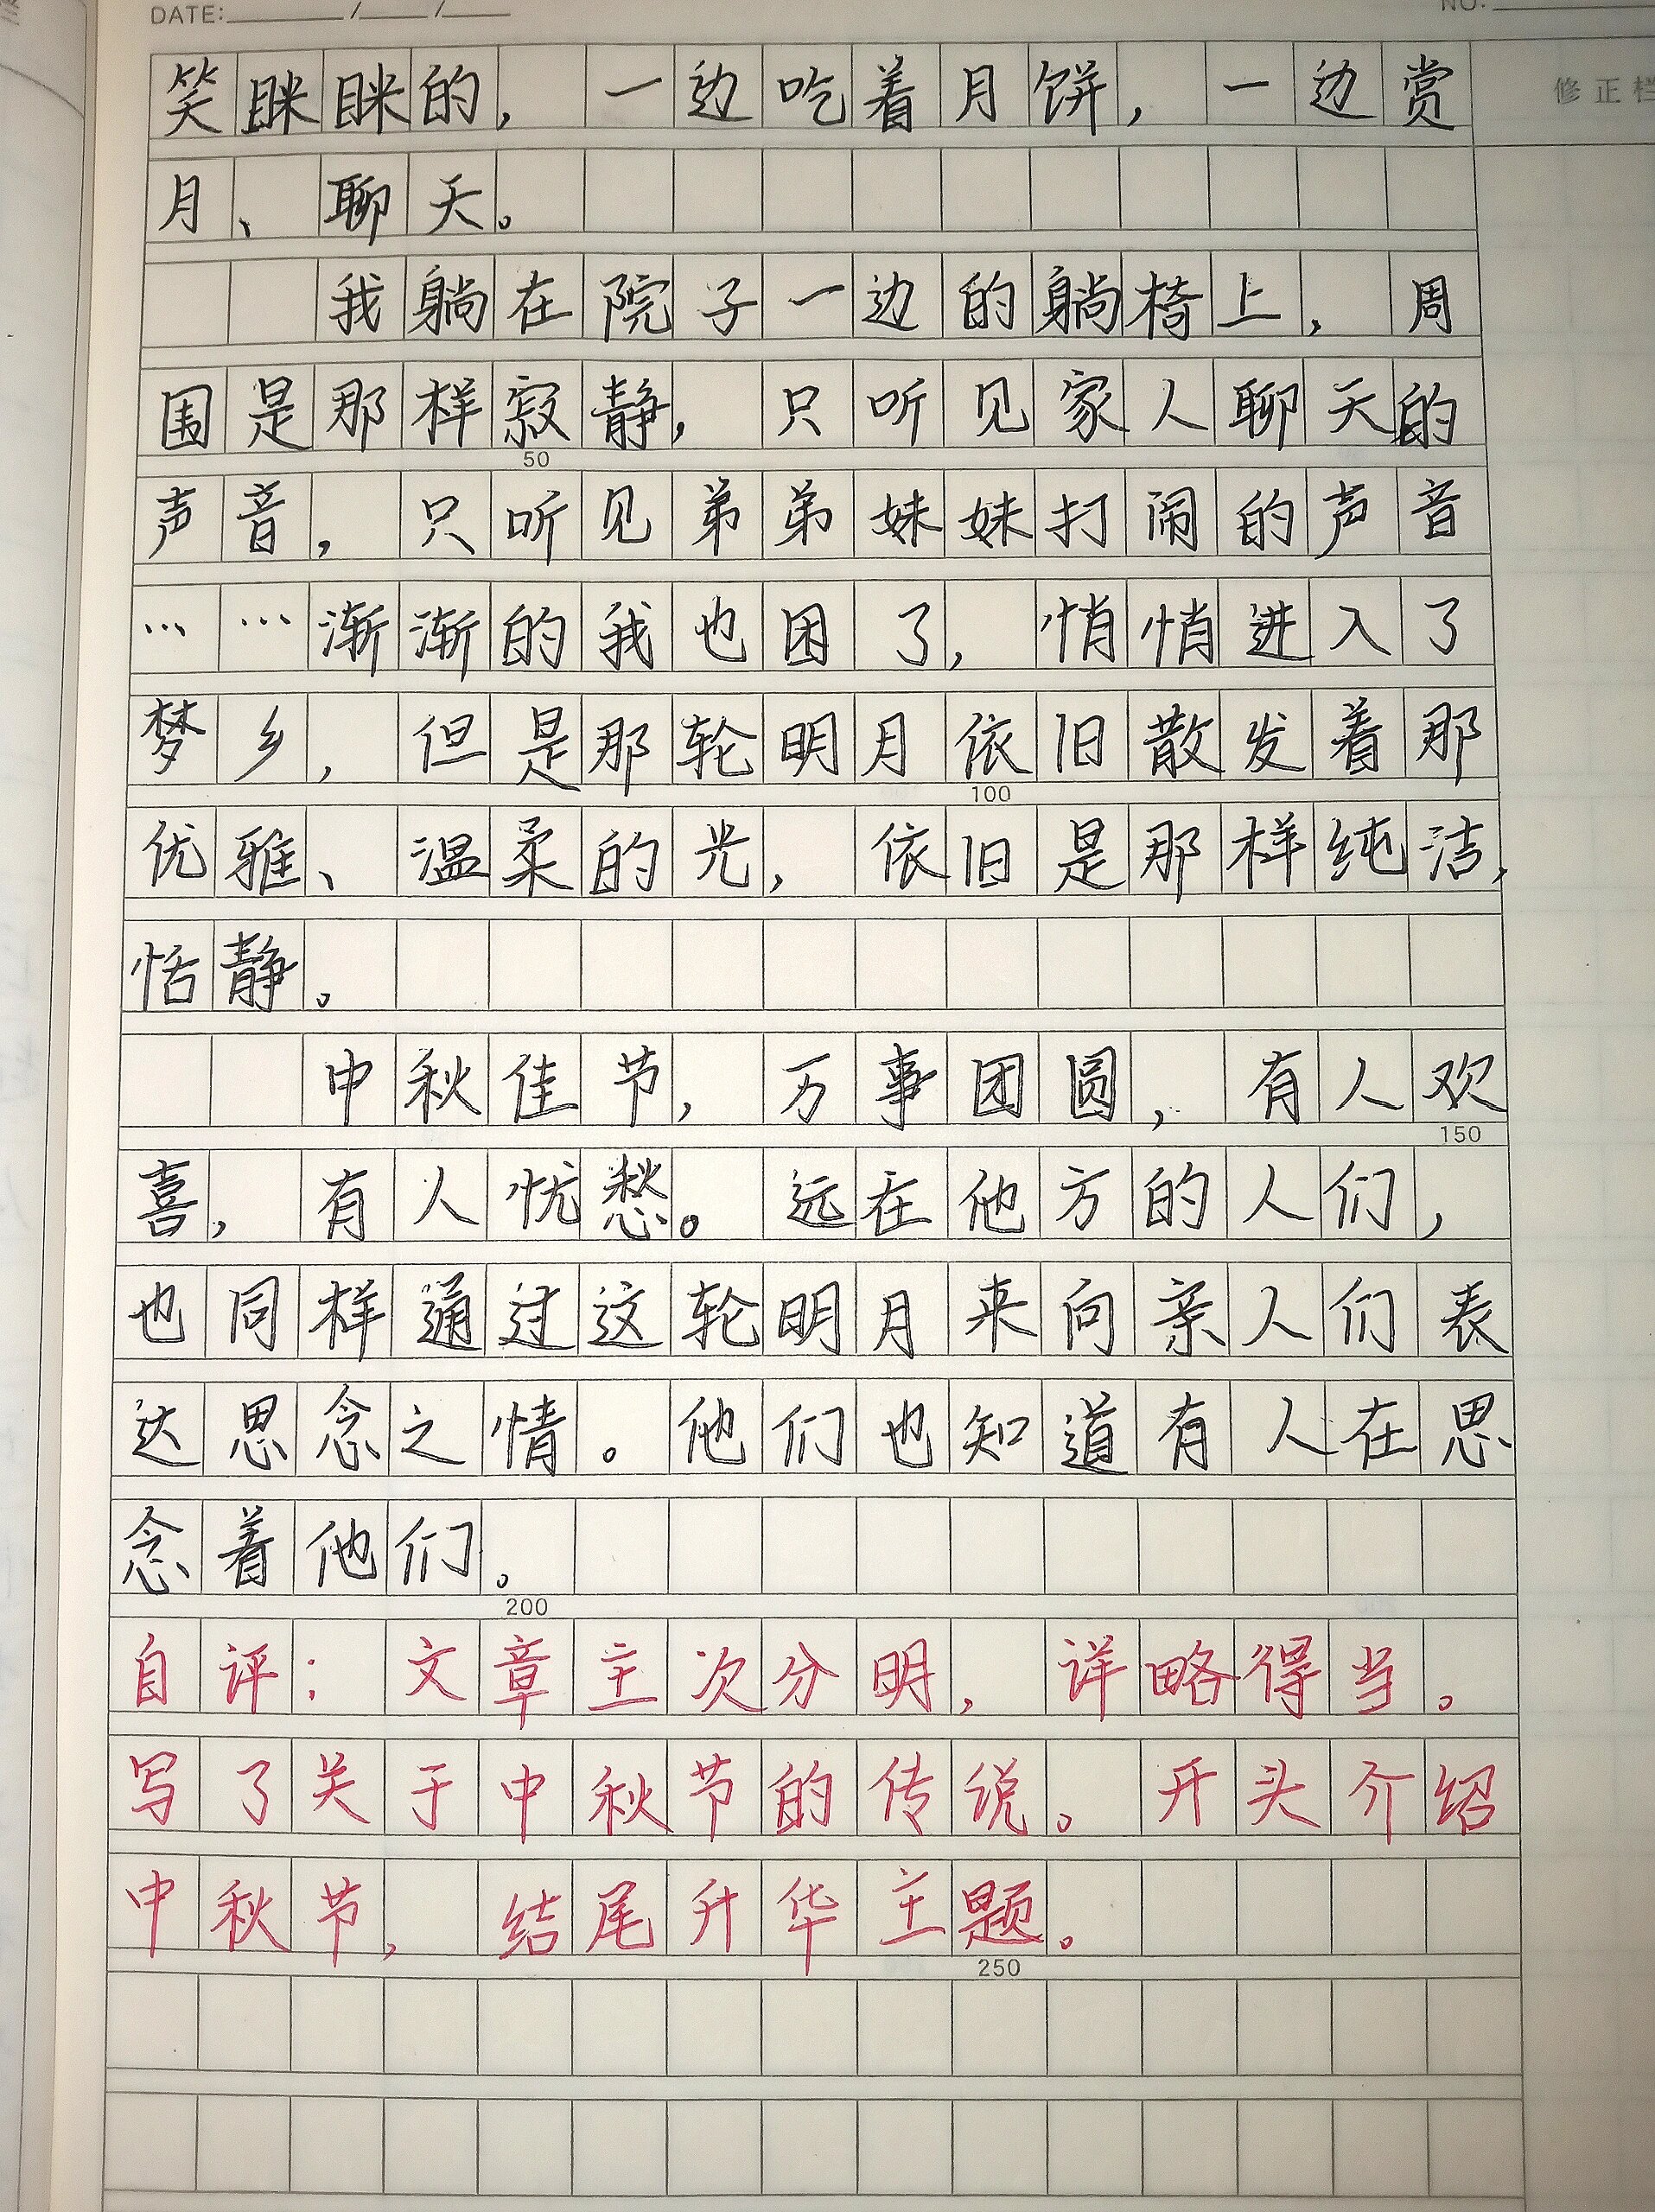 DATE: / /
NO:
修正栏
笑眯眯的，一边吃着月饼，一边赏
月、聊天。
我躺在院子一边的躺椅上，周
围是那样寂静，只听见家人聊天的
50
声音，只听见弟弟妹妹打闹的声音
……渐渐的我也困了，悄悄进入了
梦乡，但是那轮明月依旧散发着那
100
优雅、温柔的光，依旧是那样纯洁，
恬静。
中秋佳节，万事团圆，有人欢
150
喜，有人忧愁。远在他方的人们，
也同样通过这轮明月来向亲人们表
达思念之情。他们也知道有人在思
念着他们。
200
自评：文章主次分明，详略得当。
写了关于中秋节的传说。开头介绍
中秋节，结尾升华主题。
250